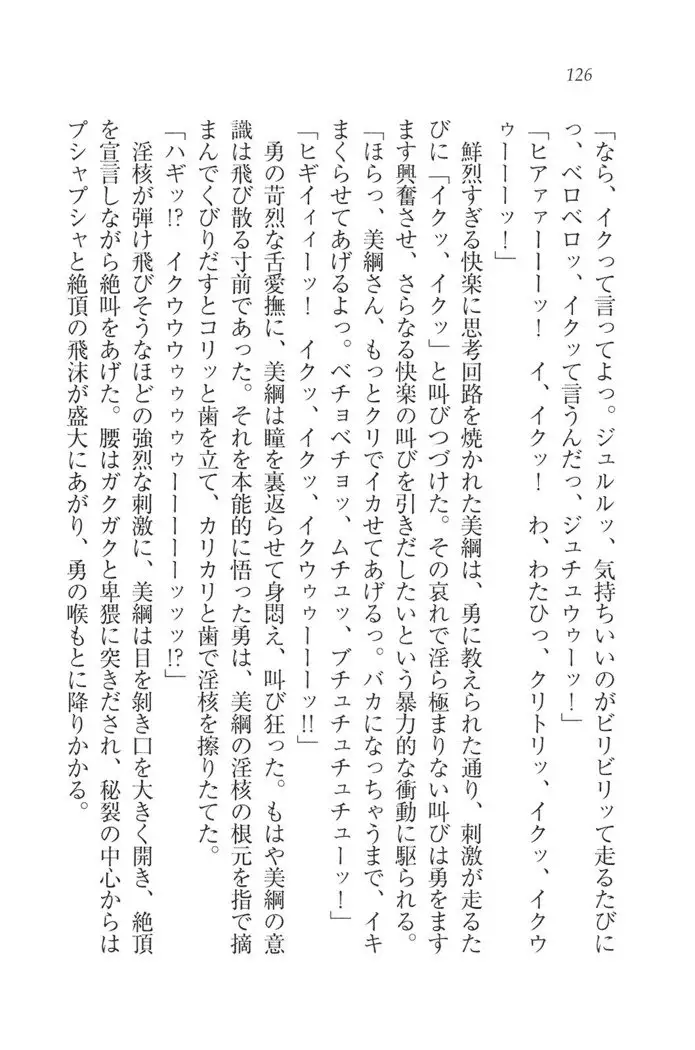 126
「なら、イクって言ってよっ。ジュルルッ、気持ちいいのがビリビリッて走るたびに
っ、ベロベロッ、イクッて言うんだっ、ジュチュウゥーッ！」
「ヒアァァーーーッ！　イ、イクッ！　わ、わたひっ、クリトリッ、イクッ、イクウ
ゥーーーッ！」
　鮮烈すぎる快楽に思考回路を焼かれた美綱は、勇に教えられた通り、刺激が走るた
びに「イクッ、イクッ」と叫びつづけた。その哀れで淫ら極まりない叫びは勇をます
ます興奮させ、さらなる快楽の叫びを引きだしたいという暴力的な衝動に駆られる。
「ほらっ、美綱さん、もっとクリでイカせてあげるっ。バカになっちゃうまで、イキ
まくらせてあげるよっ。ベチョベチョッ、ムチュッ、ブチュチュチュチューッ！」
「ヒギイィィーッ！　イクッ、イクッ、イクウゥゥーーーッ!!」
　勇の苛烈な舌愛撫に、美綱は瞳を裏返らせて身悶え、叫び狂った。もはや美綱の意
識は飛び散る寸前であった。それを本能的に悟った勇は、美綱の淫核の根元を指で摘
まんでくびりだすとコリッと歯を立て、カリカリと歯で淫核を擦りたてた。
「ハギッ!?　イクウウウゥゥゥゥゥーーーーーッッッ!?」
　淫核が弾け飛びそうなほどの強烈な刺激に、美綱は目を剝き口を大きく開き、絶頂
を宣言しながら絶叫をあげた。腰はガクガクと卑猥に突きだされ、秘裂の中心からは
プシャプシャと絶頂の飛沫が盛大にあがり、勇の喉もとに降りかかる。